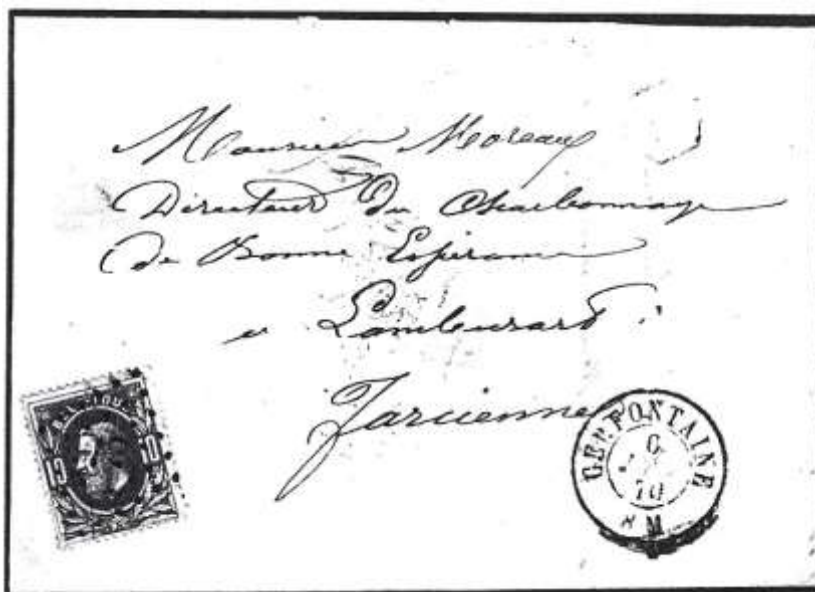 Monsieur Moreau
Directeur du Charbonnage
de Bonne Espérance
a Lambusart
Farcienne
BELGIQUE
10
GERPFONTAINE
6
70
8 M